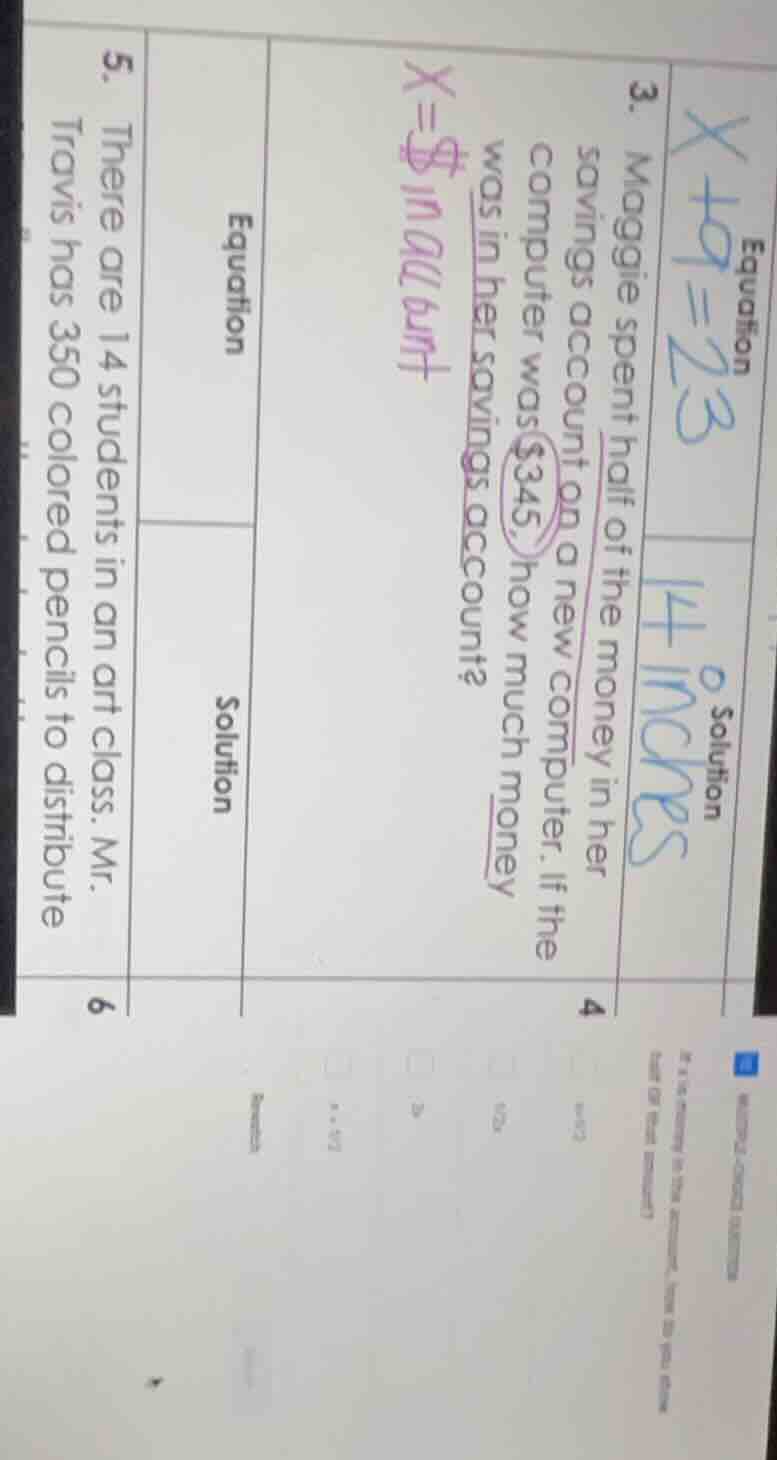 Equation
Solution
x + 9 = 23
14 inches
3. Maggie spent half of the money in her
savings account on a new computer. If the
computer was $345, how much money
was in her savings account?
x = $ in account
4
Equation
Solution
5. There are 14 students in an art class. Mr.
Travis has 350 colored pencils to distribute
6
MULTIPLE-CHOICE QUESTION
If x is money in the account, how do you show
half OF that amount?
1/2x
2x
Rewatch